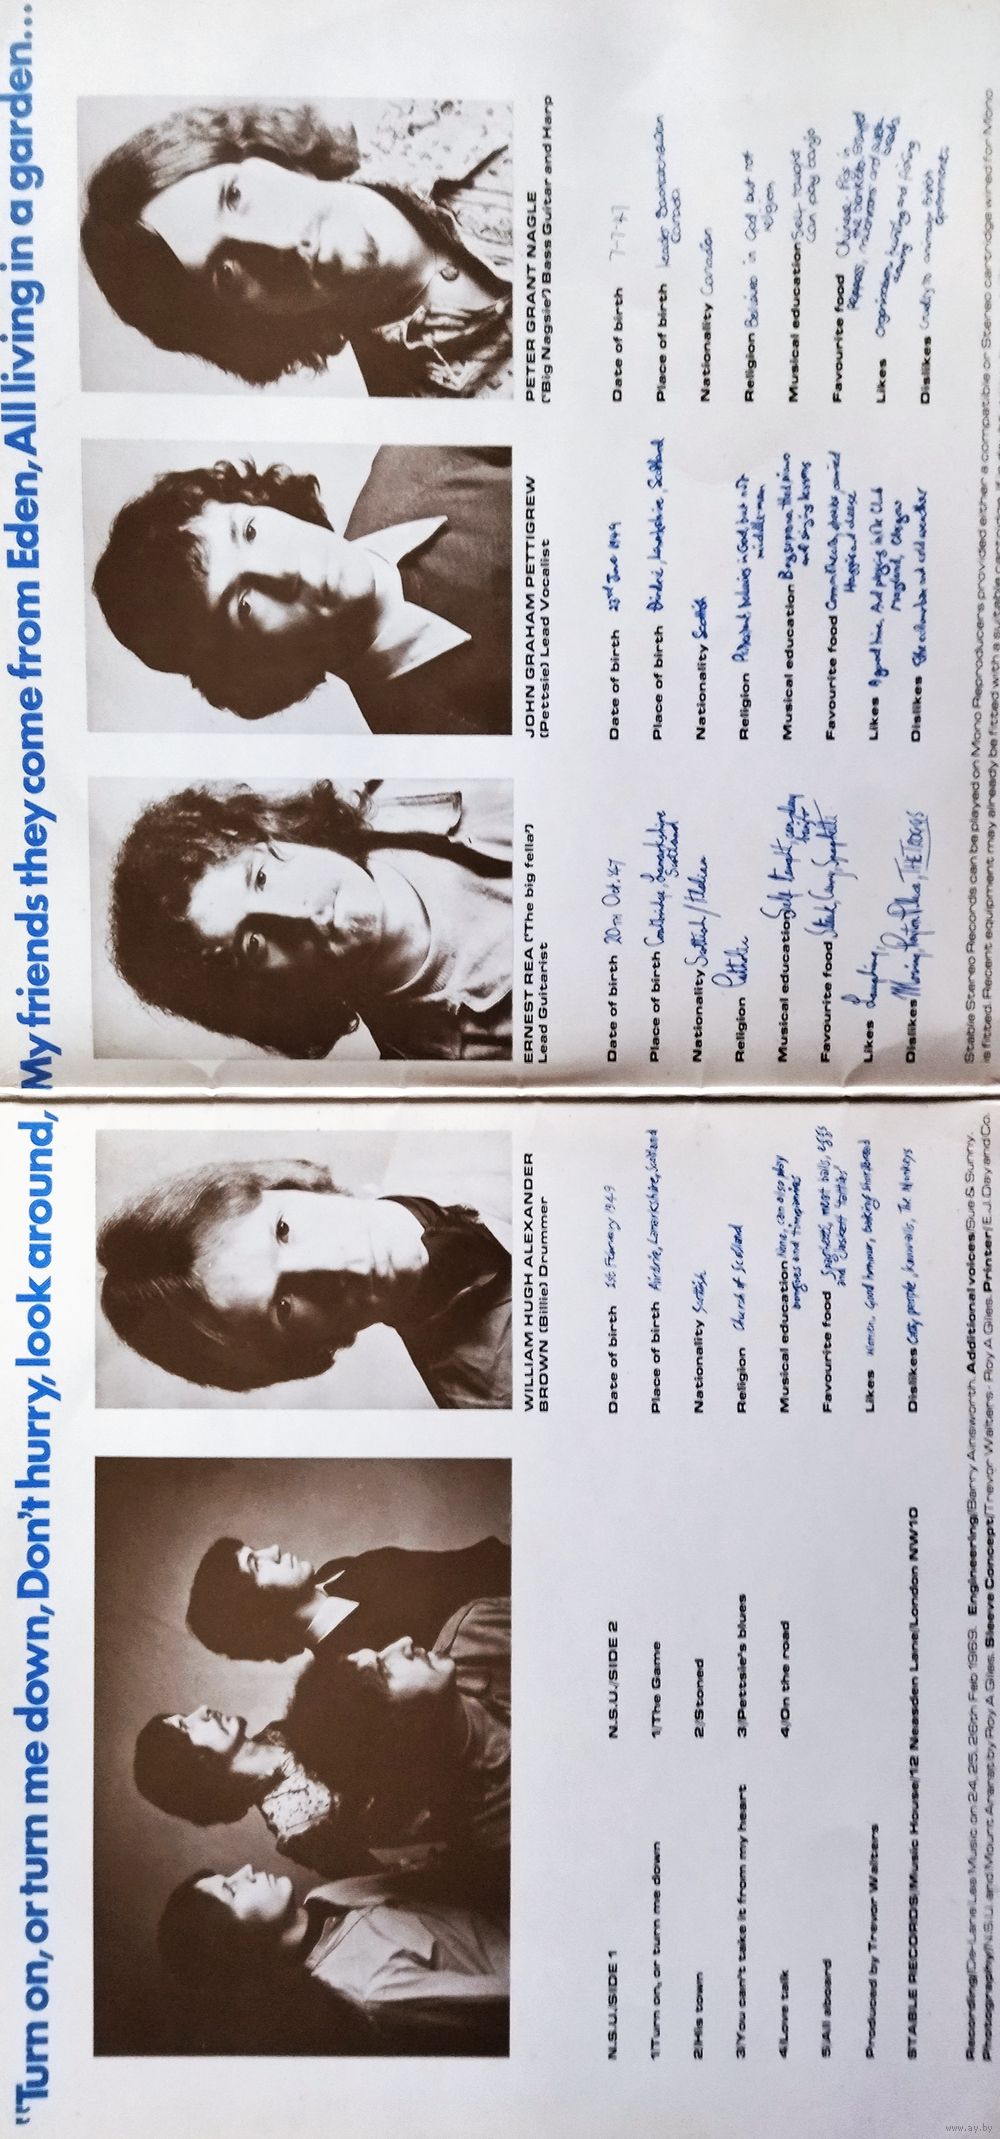 "Turn on, or turn me down, Don't hurry, look around, My friends they come from Eden, All living in a garden...
WILLIAM HUGH ALEXANDER
BROWN (Billie) Drummer
Date of birth 1st February 1949
Place of birth Airdrie, Lanarkshire, Scotland
Nationality Scottish
Religion Church of Scotland
Musical education None, can also play
bongoes and timpanies
Favourite food Spaghetti, meat balls, eggs
and
Likes Women, Good humour, being
Dislikes Catty people, The Monkeys
N.S.U./SIDE 1
1/Turn on, or turn me down
2/His town
3/You can't take it from my heart
4/Love talk
5/All aboard
Produced by Trevor Walters
STABLE RECORDS/Music House/12 Neasden Lane/London NW10
N.S.U./SIDE 2
1/The Game
2/Stoned
3/Pettsie's blues
4/On the road
ERNEST REA ('The big fella')
Lead Guitarist
Date of birth 20TH Oct. 47
Place of birth Coatbridge, Lanarkshire
Scotland
Nationality Scottish/Italian
Religion Catholic
Musical education Self taught
Favourite food Steak, Curry, Spaghetti
Likes
Dislikes THE TROGGS
JOHN GRAHAM PETTIGREW
(Pettsie) Lead Vocalist
Date of birth 23rd June 1949
Place of birth Lanarkshire, Scotland
Nationality Scottish
Religion Personal believing in God but not
middle man
Musical education Boy soprano, piano
and singing lessons
Favourite food
Haggis and cheese
Likes A good time, And playing
Maryland, Glasgow
Dislikes and cold weather
PETER GRANT NAGLE
('Big Nagsie') Bass Guitar and Harp
Date of birth 7-7-47
Place of birth Leader Saskatchewan
Canada
Nationality Canadian
Religion Believes in God but not
religion
Musical education Self taught
can play banjo
Favourite food Chinese
mushrooms and
Likes
Dislikes Cruelty to animals British
Governments.
Recording/De Lane Lea Music on 24, 25, 26th Feb 1969. Engineering/Barry Ainsworth. Additional voices/Sue & Sunny.
Photography/N.S.U. and Mount Ararat by Roy A Giles. Sleeve Concept/Trevor Walters - Roy A Giles. Printer/E.J.Day and Co.
Stable Stereo Records can be played on Mono Reproducers provided either a compatible or Stereo cartridge wired for Mono
is fitted. Recent equipment may already be fitted with a suitable
www.ay.by